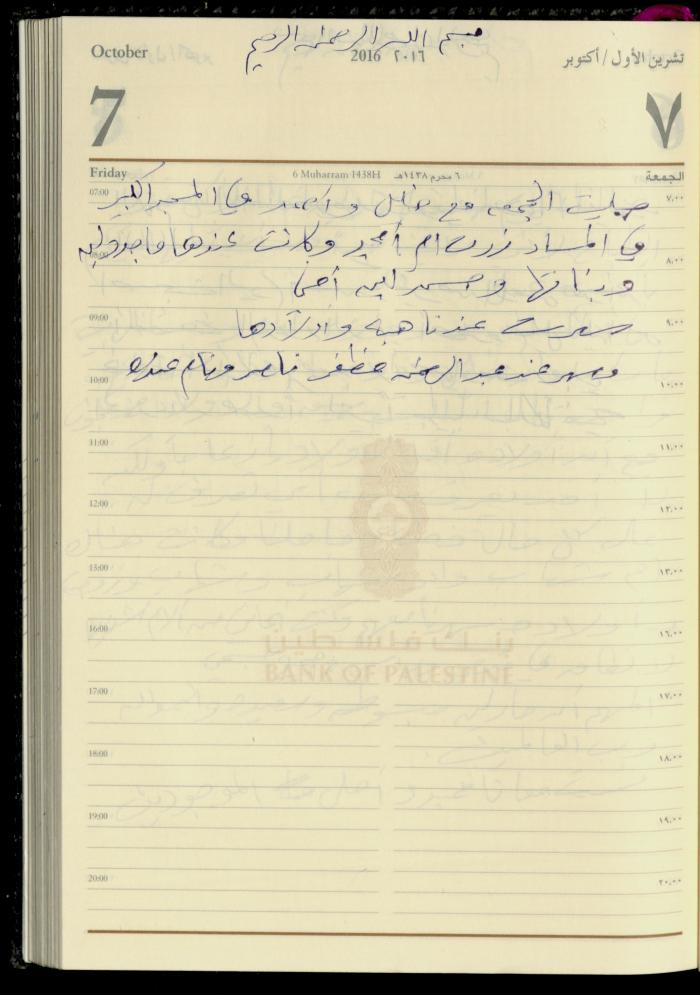 بسم الله الرحمن الرحيم
October 2016 ٢٠١٦ تشرين الأول / أكتوبر
7 ٧
Friday 6 Muharram 1438H ٦ محرم ١٤٣٨هـ الجمعة
07:00 صليت الجمعة مع وأحمد في المسجد الكبير ٧,٠٠
08:00 في المساء زرت ام أمجد وكانت عندها ماجدولين ٨,٠٠
وبناتها أختي
09:00 سهرت عندنا هبة وأولادها ٩,٠٠
10:00 وسهر عند عبد الرحمن مظفر ناصر ونام عنده ١٠,٠٠
11:00 ١١,٠٠
12:00 ١٢,٠٠
13:00 ١٣,٠٠
16:00 ١٦,٠٠
بنك فلسطين
BANK OF PALESTINE
17:00 ١٧,٠٠
18:00 ١٨,٠٠
19:00 ١٩,٠٠
20:00 ٢٠,٠٠